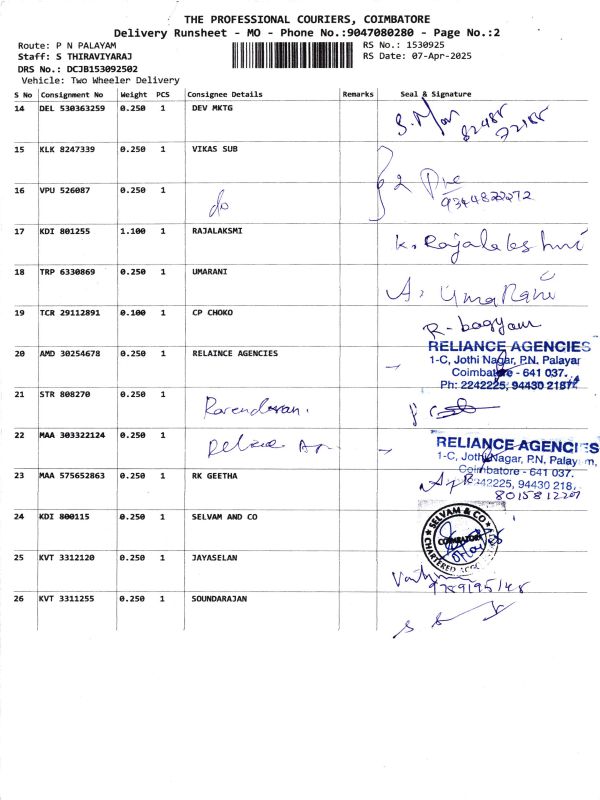 THE PROFESSIONAL COURIERS, COIMBATORE
Delivery Runsheet - MO - Phone No.:9047080280 - Page No.:2
Route: P N PALAYAM
RS No.: 1530925
Staff: S THIRAVIYARAJ
RS Date: 07-Apr-2025
DRS No.: DCJB153092502
Vehicle: Two Wheeler Delivery
S No Consignment No Weight PCS Consignee Details Remarks Seal & Signature
14 DEL 530363259 0.250 1 DEV MKTG
15 KLK 8247339 0.250 1 VIKAS SUB
16 VPU 526087 0.250 1 do
9344822272
17 KDI 801255 1.100 1 RAJALAKSMI K. Rajalakshmi
18 TRP 6330869 0.250 1 UMARANI A. UmaRani
19 TCR 29112891 0.100 1 CP CHOKO R. bagyam
20 AMD 30254678 0.250 1 RELAINCE AGENCIES
RELIANCE AGENCIES
1-C, Jothi Nagar, P.N. Palayar
Coimbatore - 641 037.
Ph: 2242225, 94430 218
21 STR 808270 0.250 1
22 MAA 303322124 0.250 1
RELIANCE AGENCIES
1-C, Jothi Nagar, P.N. Palayam,
Coimbatore - 641 037.
2242225, 94430 218
23 MAA 575652863 0.250 1 RK GEETHA
8015812207
24 KDI 800115 0.250 1 SELVAM AND CO
SELVAM & CO
COIMBATORE
CHARTERED
25 KVT 3312120 0.250 1 JAYASELAN
26 KVT 3311255 0.250 1 SOUNDARAJAN